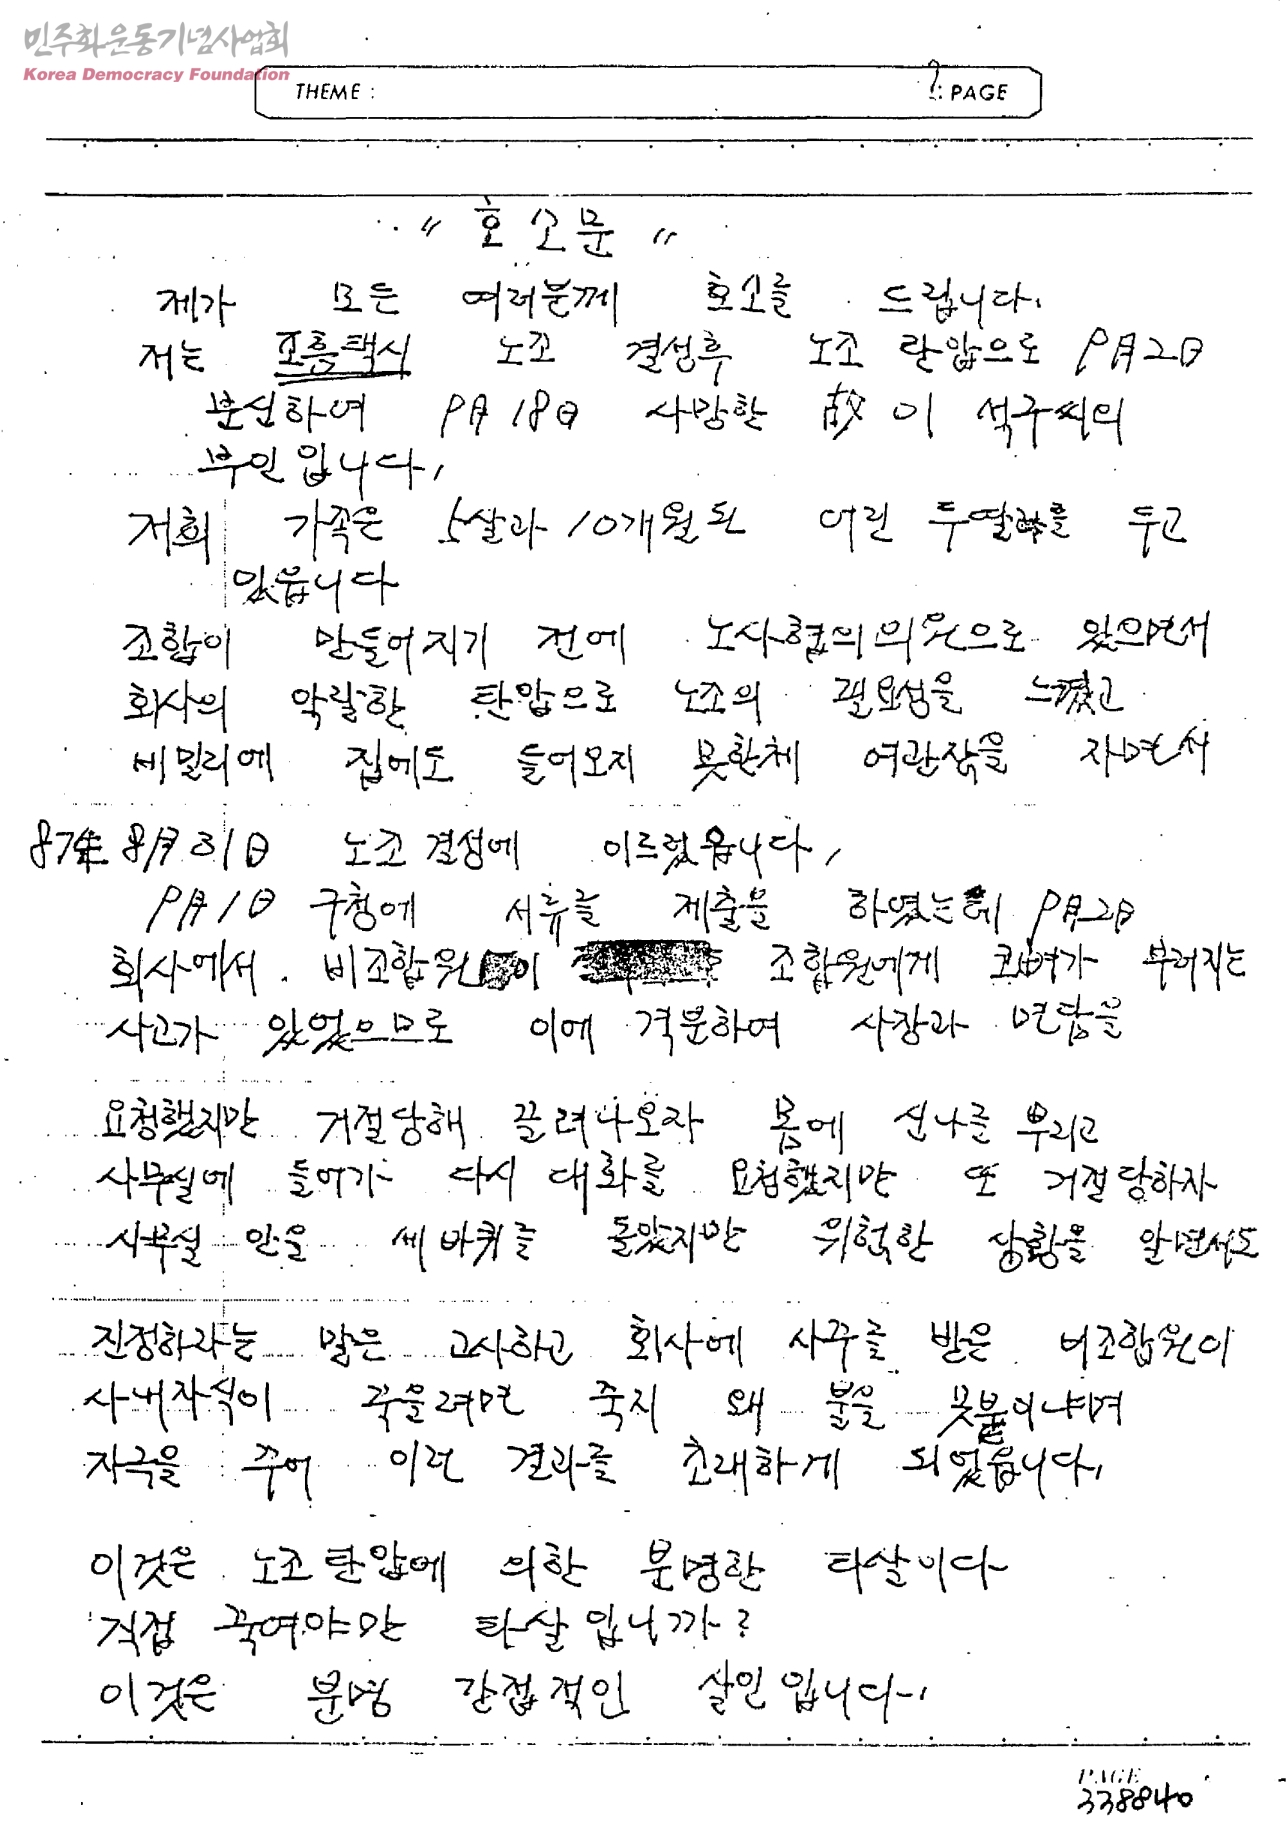 민주화운동기념사업회
Korea Democracy Foundation
THEME :
: PAGE
" 호소문 "
제가 모든 여러분께 호소를 드립니다.
저는 조흥택시 노조 결성후 노조 탄압으로 9月2日
분신하여 9月 18日 사망한 故 이 석구씨의
부인입니다.
저희 가족은 5살과 10개월된 어린 두딸을 두고
있읍니다
조합이 만들어지기 전에 노사협의의원으로 있으면서
회사의 악랄한 탄압으로 노조의 필요성을 느꼈고
비밀리에 집에도 들어오지 못한체 여관잠을 자면서
87年 8月 31日 노조 결성에 이르렀읍니다.
9月 1日 구청에 서류를 제출을 하였는데 9月2日
회사에서. 비조합원이 조합원에게 코뼈가 부러지는
사고가 있었으므로 이에 격분하여 사장과 면담을
요청했지만 거절당해 끌려나오자 몸에 신나를 뿌리고
사무실에 들어가 다시 대화를 요청했지만 또 거절당하자
사무실 안을 세바퀴를 돌았지만 위험한 상황을 알면서도
진정하라는 말은 고사하고 회사에 사주를 받은 비조합원이
사내자식이 죽을려면 죽지 왜 불을 못붙이냐며
자극을 주어 이런 결과를 초래하게 되었읍니다.
이것은 노조탄압에 의한 분명한 타살이다
직접 죽여야만 타살입니까?
이것은 분명 간접적인 살인입니다.
PAGE
338840